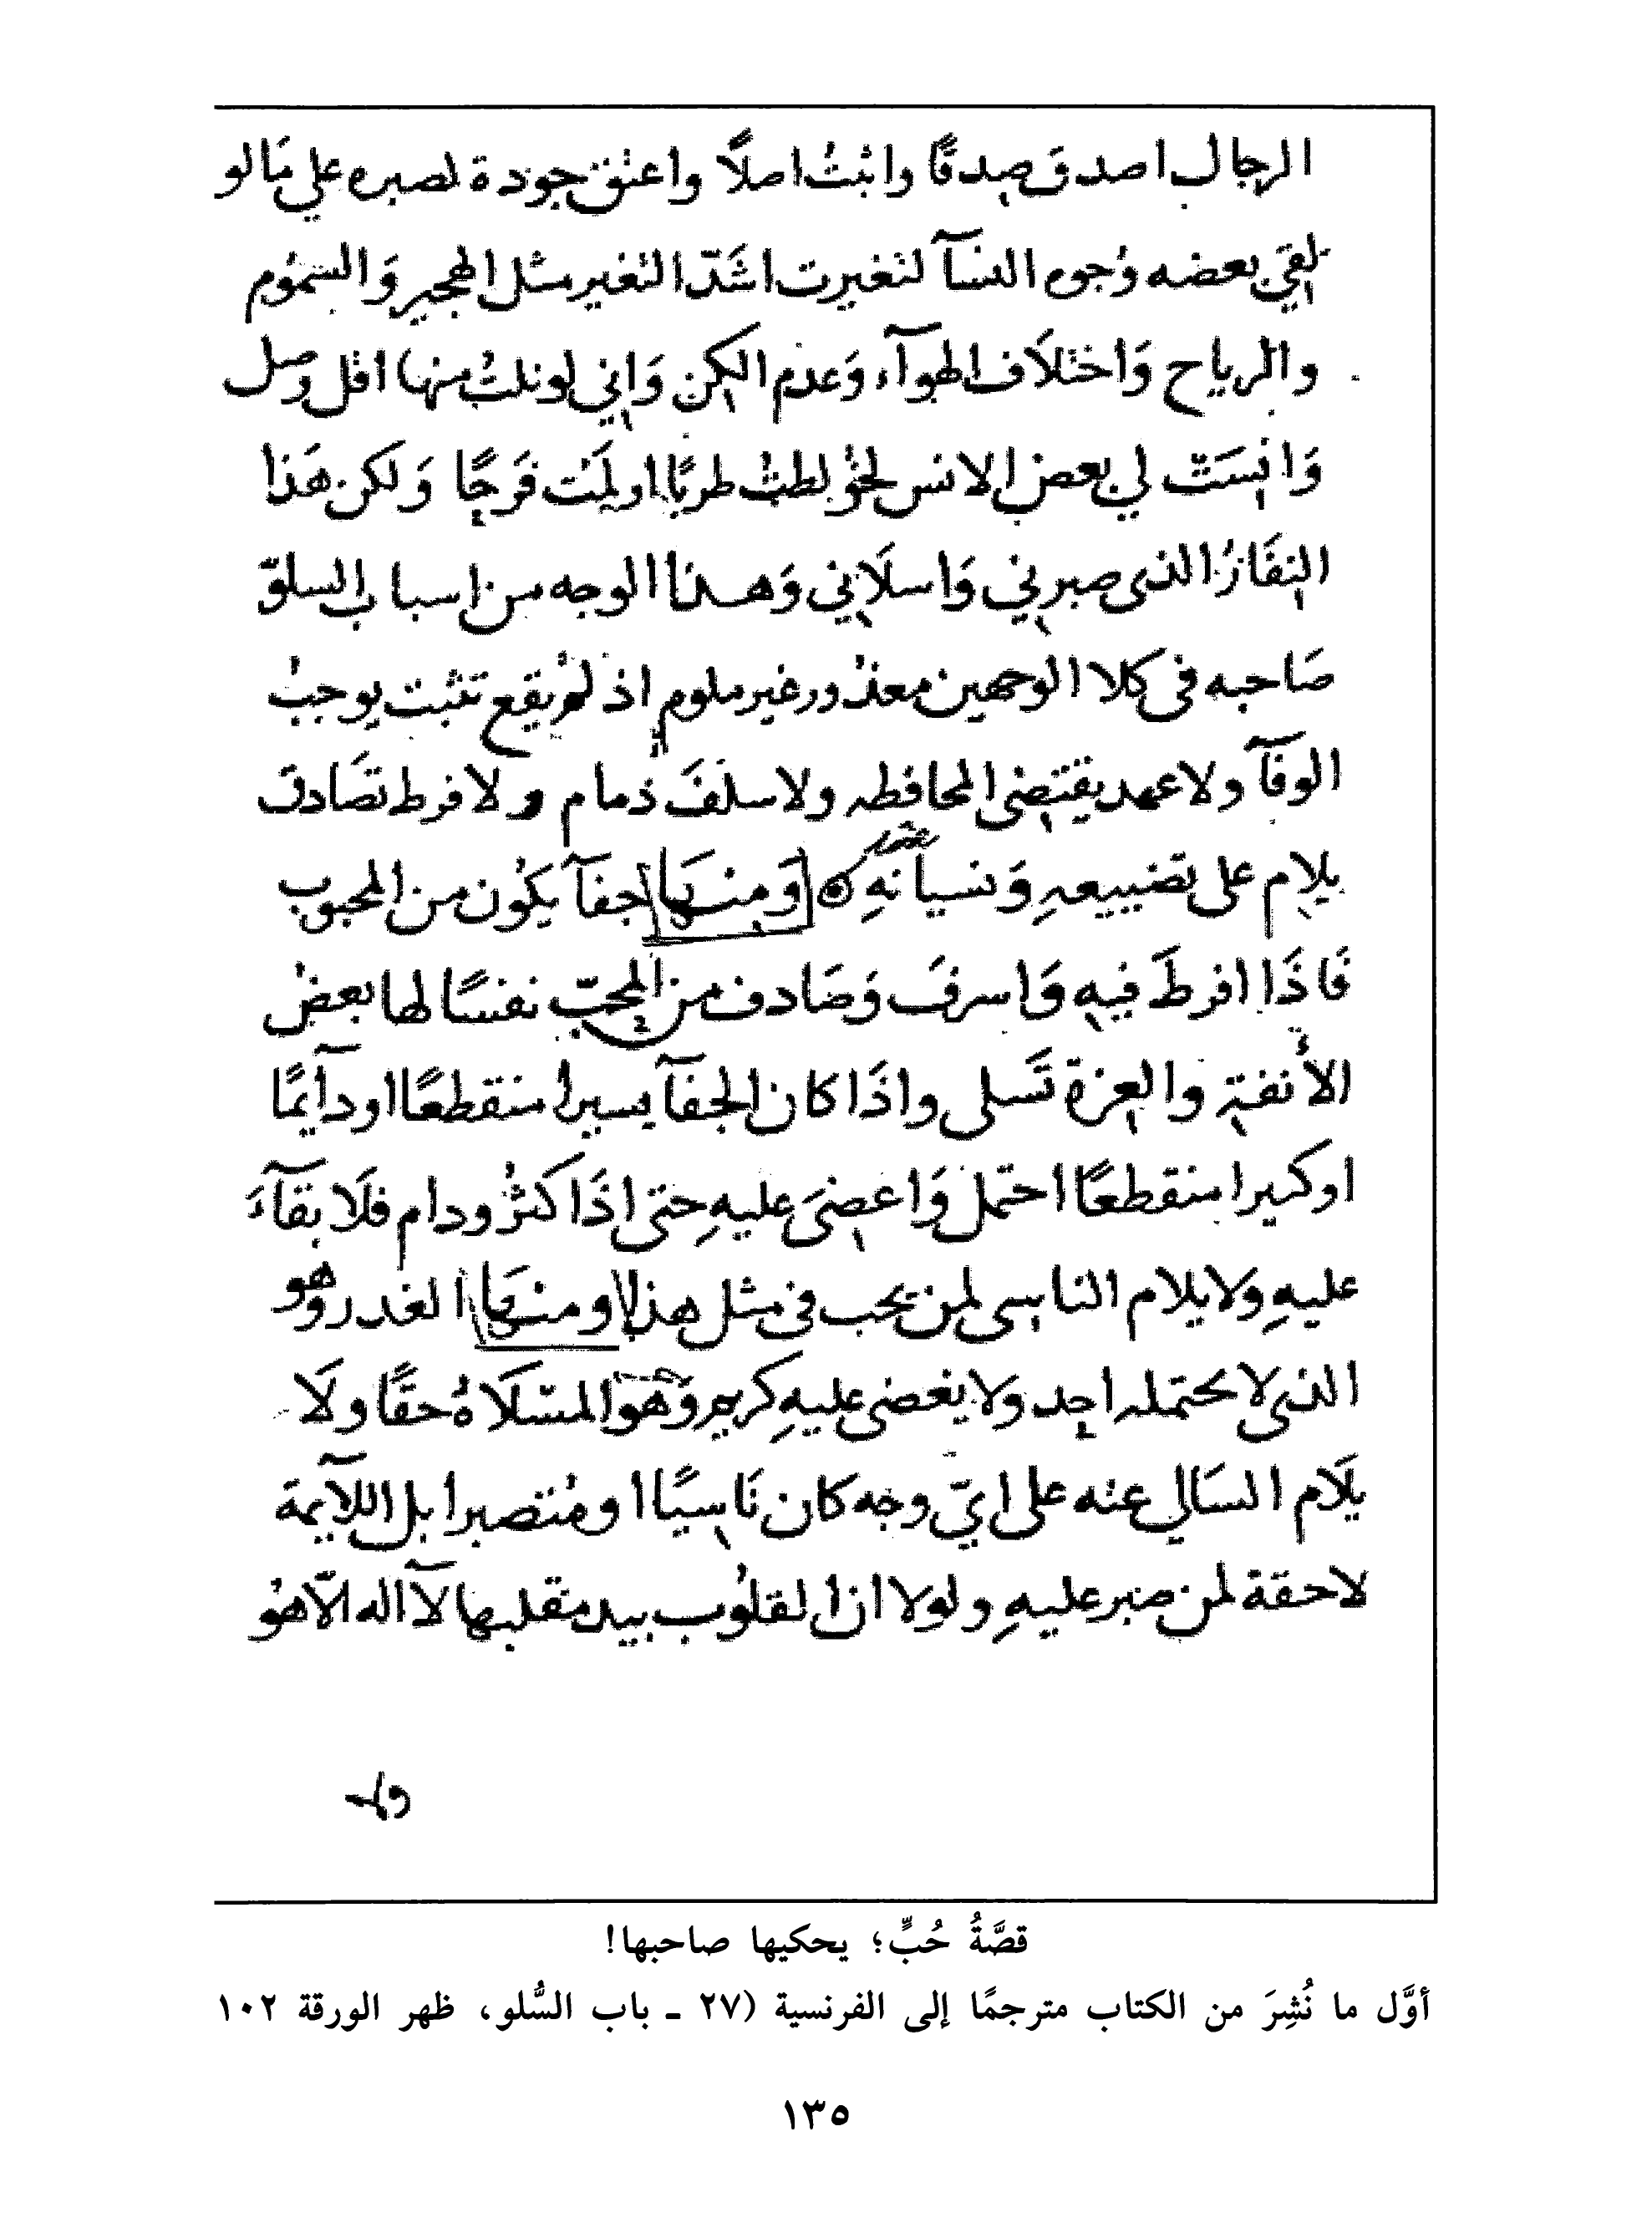 الرجال اصدق صِدقًا واثبتُ اصلاً واعتق جودة لصبره علي مَا لو
لقي بعضه وُجوه النسآ لتغيرت اشَدّ التغير مثل الهجير وَالسمُوم
والرياح وَاختلاَف الهوآء وَعدم الكِن وَاِني لو نلتُ منها اقل وصل
وَانِسَتْ لي بعض الانس لخُولطتُ طربًا او لمُت فَرَحًا وَلكن هَذا
النِفَارُ الذي صبرني وَاسلاَني وَهـذا الوجه من اسباب السلوّ
صَاحبه في كلا الوجهين معذُور غير ملوم اذ لمْ يقع تثبت يوجبُ
الوفآ ولا عهد يقتضِي المحافظه ولا سلَفَ ذمام ولا فرط تصَادق
يلام على تضييعهِ وَنسيانهِ وَمنهَا جفآ يَكُون من المحبوب
فَاذَا افرطَ فيهِ وَاسرفَ وَصَادف من المحبّ نفسًا لها بعضُ
الأنفةِ والعِزة تَسلى واذَا كان الجفآ يسيرا منقطعًا او دآيمًا
او كبيرا منقطعًا احتمل وَاغضِىَ عليهِ حتى اذَا كثُر ودام فلَا بقآءَ
عليهِ ولا يلام الناسِى لمن يحب في مثل هذا ومنهَا الغدر وهو
الذي لا يحتمله احد ولا يغضى عليهِ كريم وَهوَ المسْلَاةُ حقًا ولَا
يلَام السَالي عنه على ايّ وجه كان نَاسِيًا او مُتصبرا بل اللآيمة
لاحقة لمن صبر عليهِ ولولا ان القلُوب بيد مقلبها لآ اله الاّ هُو
قصَّةُ حُبٍّ؛ يحكيها صاحبها!
أوَّل ما نُشِرَ من الكتاب مترجمًا إلى الفرنسية (٢٧ ـ باب السُّلو، ظهر الورقة ١٠٢
١٣٥